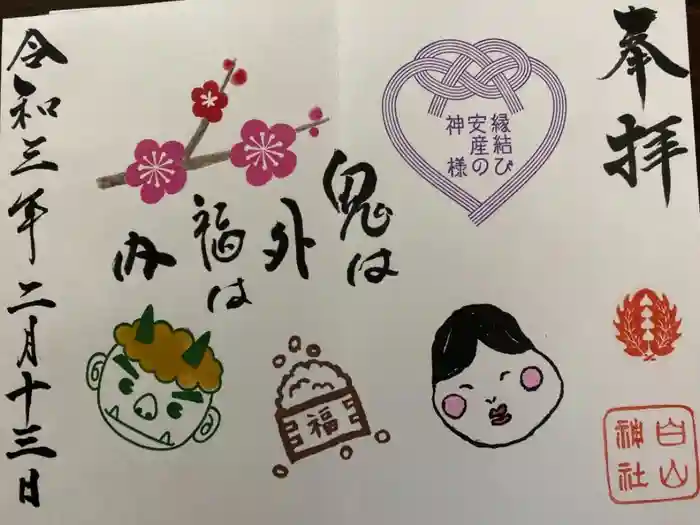 奉拝
白山
神社
縁結び
安産の
神様
鬼は
外
福は
内
福
令和三年二月十三日